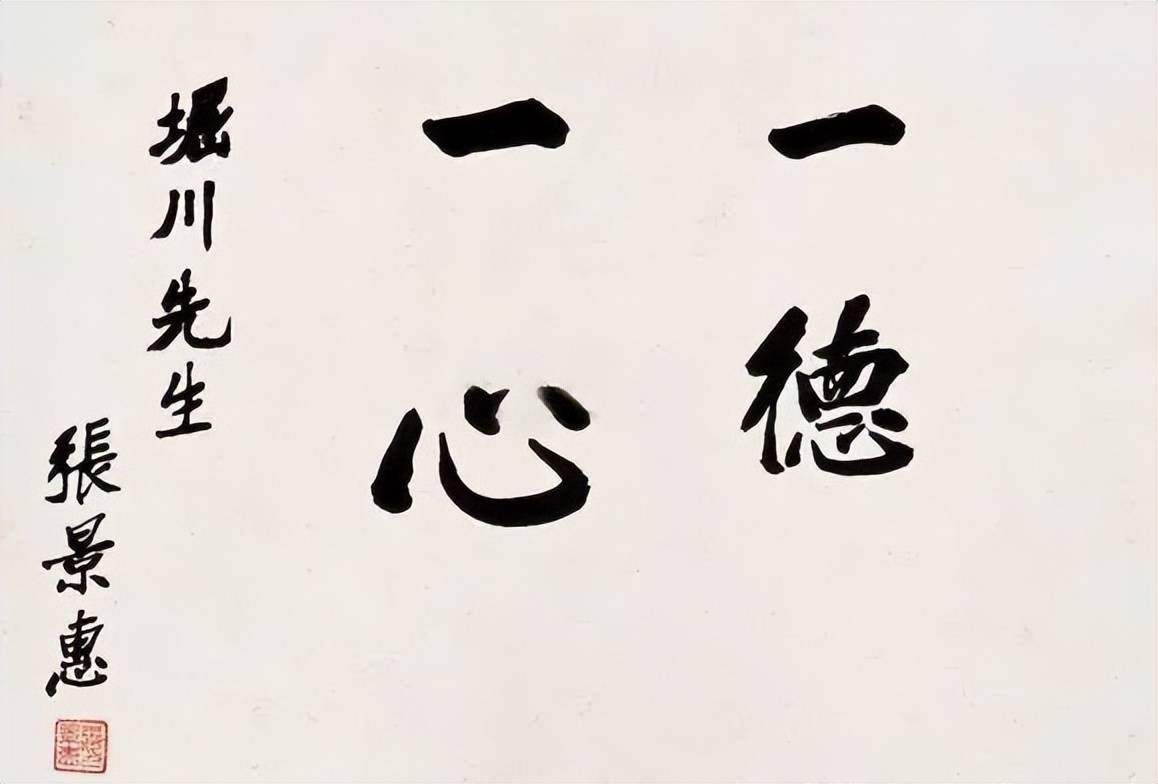 一德
一心
堀川先生
張景惠